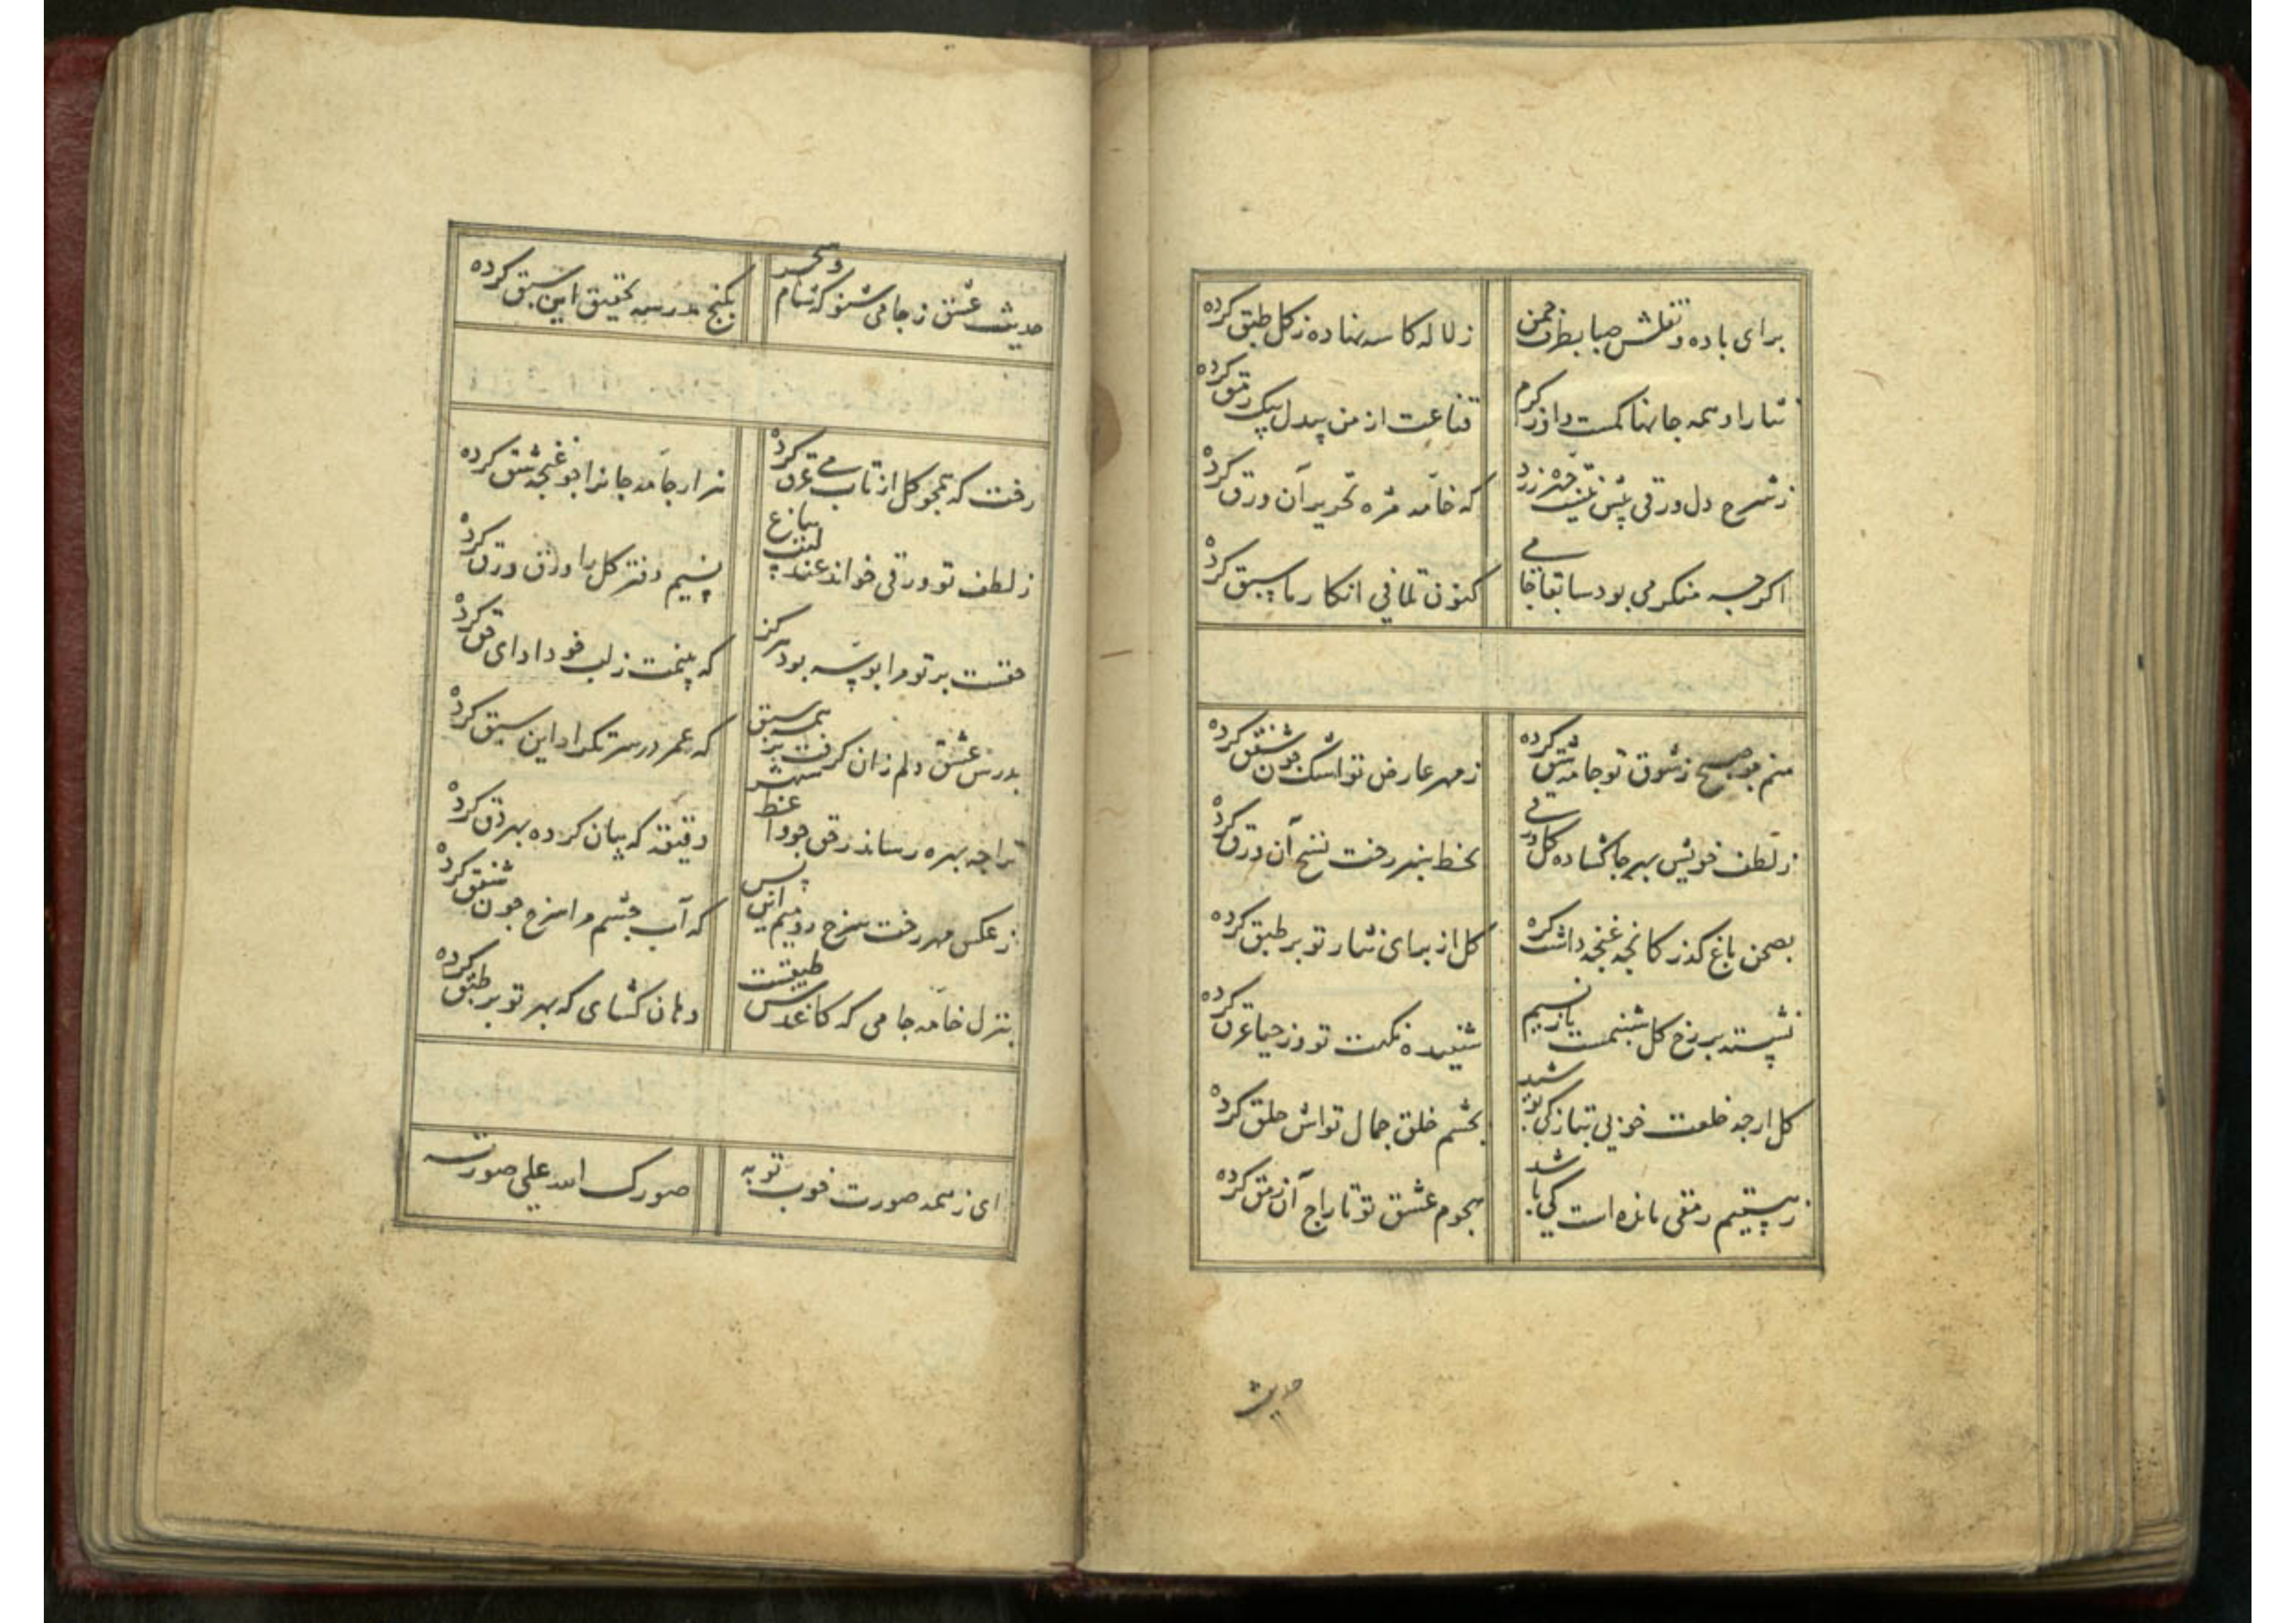 برای باده و نقلش صبا بطرف چمن زلاله کاسه نهاده ز کل طبق کرده
نثار را و همه جانها کمست واز کرم قناعت از من بیدل بیک رمق کرده
ز شرح دل ورقی پیش نیست که خامه مژه تحریر آن ورق کرده
اکرچه منکر می بود سابقا جامی کنون تلافی انکار ما سبق کرده
منم چو صبح ز شوق تو جامه شق کرده ز مهر عارض تو اشک چون شفق کرده
ز لطف خویش بهر جا کشاده کل دفتری بخط سبز رخت نسخ آن ورق کرده
بصحن باغ کذر کانچه غنچه داشت کره کل از برای نثار تو بر طبق کرده
نشسته بر رخ کل شبنمست یا ز نسیم شنیده نکهت تو وز حیا عرق کرده
کل ارچه خلعت خوبی بتازکی پوشد بچشم خلق جمال تواش خلق کرده
ز هستیم رمقی مانده است کی باشد هجوم عشق تو تاراج آن رمق کرده
حدیث
حدیث عشق ز جامی شنو که شام و سحر بکنج مدرسه تحقیق این سبق کرده
رخت که همچو کل از تاب می عرق کرده هزار جامه جانرا چو غنچه شق کرده
ز لطف تو ورقی خواند عندلیب بباغ نسیم دفتر کل را ورق ورق کرده
حقست بر تو مرا بوسه بود هرکز که بینمت ز لب خود ادای حق کرده
بدرس عشق دلم زان کرفت بر همه سبق که عمر در سر تکرار این سبق کرده
ترا چه بهره رساند دقیقه که بیان کرده بهر دق کرده
ز عکس مهر رخت سرخ رویم این بس که آب چشم مرا سرخ چون شفق کرده
بنزل خامه جامی که کاغذش طبقست دهان کشای که بهر تو بر طبق کرده
ای ز همه صورت خوب تو به صورک الله علی صورته